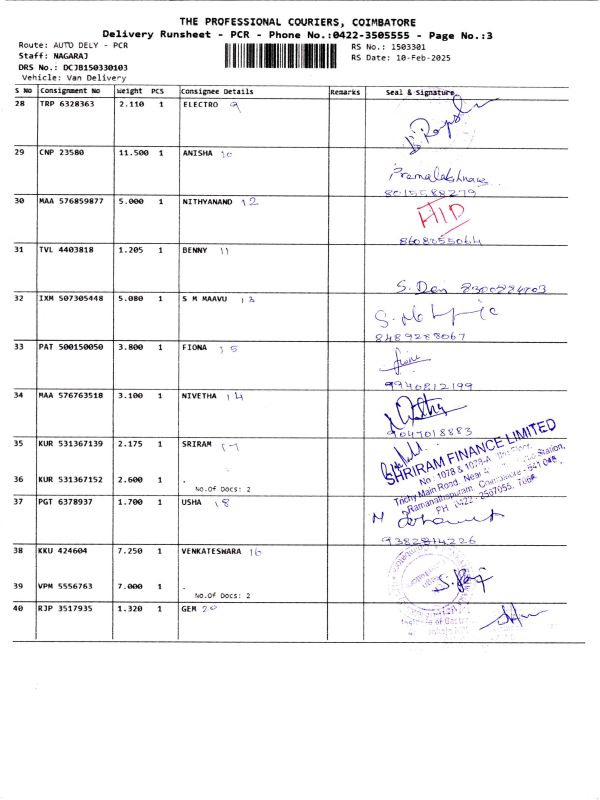 THE PROFESSIONAL COURIERS, COIMBATORE
Delivery Runsheet - PCR - Phone No.:0422-3505555 - Page No.:3
Route: AUTO DELY - PCR
RS No.: 1503301
Staff: NAGARAJ
RS Date: 10-Feb-2025
DRS No.: DCJB150330103
Vehicle: Van Delivery
S No Consignment No Weight PCS Consignee Details Remarks Seal & Signature
28 TRP 6328363 2.110 1 ELECTRO 9
29 CNP 23580 11.500 1 ANISHA 10
Premalakshmanan
8015588279
30 MAA 576859877 5.000 1 NITHYANAND 12
A11D
8608055064
31 TVL 4403818 1.205 1 BENNY 11
S. Den 8300224703
32 IXM 507305448 5.080 1 S M MAAVU 13
8489288067
33 PAT 500150050 3.800 1 FIONA 15
9940812199
34 MAA 576763518 3.100 1 NIVETHA 14
9047018883
35 KUR 531367139 2.175 1 SRIRAM 17
SHRIRAM FINANCE LIMITED
No : 1078 & 1079-A, Floor,
Trichy Main Road, Near Station,
Ramanathapuram, Coimbatore - 641 045.
PH : 0422 - 2567055, 7066
36 KUR 531367152 2.600 1 .
No.Of Docs: 2
37 PGT 6378937 1.700 1 USHA 18
9382814226
38 KKU 424604 7.250 1 VENKATESWARA 16
39 VPM 5556763 7.000 1 .
No.Of Docs: 2
40 RJP 3517935 1.320 1 GEM 20